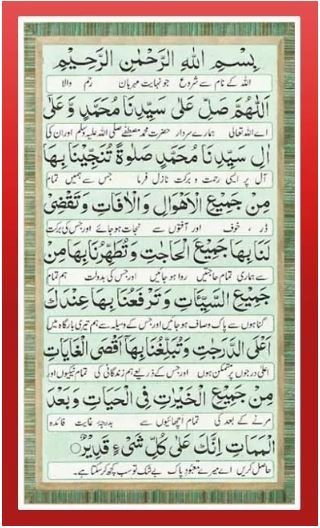 بِسْمِ اللهِ الرَّحْمٰنِ الرَّحِیْمِ
اللہ کے نام سے شروع جو نہایت مہربان رحم والا
اَللّٰهُمَّ صَلِّ عَلٰی سَیِّدِنَا مُحَمَّدٍ وَّعَلٰی
اے اللہ تعالی ہمارے سردار حضرت محمد مصطفےٰ صلی اللہ علیہ وسلم اور ان کی
اٰلِ سَیِّدِنَا مُحَمَّدٍ صَلٰوةً تُنَجِّیْنَا بِهَا
آل پر ایسی رحمت و برکت نازل فرما جس سے ہمیں تمام
مِنْ جَمِیْعِ الْاَهْوَالِ وَالْاٰفَاتِ وَتَقْضِیْ
ڈر، خوف اور آفتوں سے نجات ہو جائے اور جس کی برکت
لَنَا بِهَا جَمِیْعَ الْحَاجَتِ وَتُطَهِّرُنَا بِهَا مِنْ
سے ہماری تمام حاجتیں روا ہو جائیں اور جس کی بدولت ہم تمام
جَمِیْعِ السَّیِّئَاتِ وَتَرْفَعُنَا بِهَا عِنْدَكَ
گناہوں سے پاک و صاف ہو جائیں اور جس کے وسیلہ سے ہم تیری بارگاہ میں
اَعْلَی الدَّرَجٰتِ وَتُبَلِّغُنَا بِهَا اَقْصَی الْغَایَاتِ
اعلیٰ درجوں پر متمکن ہوں اور جس کے ذریعے ہم زندگانی کی تمام نیکیوں اور
مِنْ جَمِیْعِ الْخَیْرٰتِ فِی الْحَیَاتِ وَبَعْدَ
مرنے کے بعد کی تمام اچھائیوں سے بدرجۂ غایت فائدہ
الْمَمَاتِ اِنَّكَ عَلٰی كُلِّ شَیْءٍ قَدِیْرٌ
حاصل کریں اے میرے معبود پاک بے شک تو سب کچھ کر سکتا ہے۔